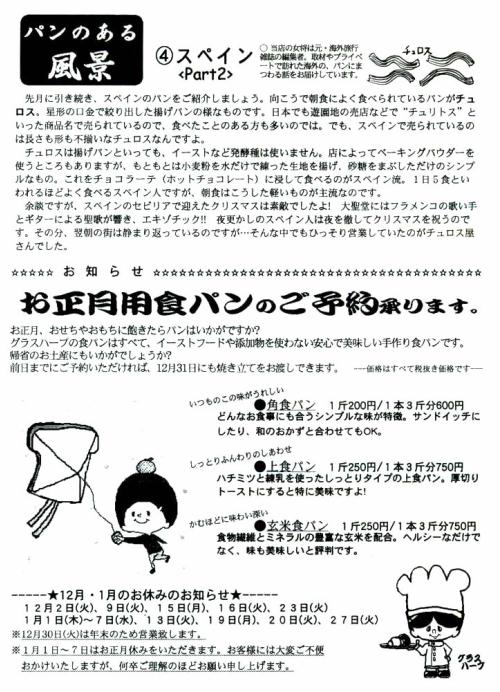 パンのある
風景
④スペイン
<Part2>
○ 当店の女将は元・海外旅行
雑誌の編集者。取材やプライベ
ートで訪れた海外の、パンにま
つわる話をお届けしています。
チュロス
先月に引き続き、スペインのパンをご紹介しましょう。向こうで朝食によく食べられているパンがチュ
ロス。星形の口金で絞り出した揚げパンの様なものです。日本でも遊園地の売店などで“チュリトス”と
いった商品名で売られているので、食べたことのある方も多いのでは。でも、スペインで売られているの
は長さも形も不揃いなチュロスなんですよ。
チュロスは揚げパンといっても、イーストなど発酵種は使いません。店によってベーキングパウダーを
使うところもありますが、もともとは小麦粉を水だけで練った生地を揚げ、砂糖をまぶしただけのシンプ
ルなもの。これをチョコラーテ（ホットチョコレート）に浸して食べるのがスペイン流。１日５食とい
われるほどよく食べるスペイン人ですが、朝食はこうした軽いものが主流なのです。
余談ですが、スペインのセビリアで迎えたクリスマスは素敵でしたよ! 大聖堂にはフラメンコの歌い手
とギターによる聖歌が響き、エキゾチック!! 夜更かしのスペイン人は夜を徹してクリスマスを祝うので
す。その分、翌朝の街は静まり返っているのですが…そんな中でもひっそり営業していたのがチュロス屋
さんでした。
☆☆☆☆☆ お 知 ら せ ☆☆☆☆☆☆☆☆☆☆☆☆☆☆☆☆☆☆☆☆☆☆☆☆☆☆☆☆☆☆
お正月用食パンのご予約承ります。
お正月、おせちやおもちに飽きたらパンはいかがですか?
グラスハーブの食パンはすべて、イーストフードや添加物を使わない安心で美味しい手作り食パンです。
帰省のお土産にもいかがでしょうか?
前日までにご予約いただければ、12月31日にも焼き立てをお渡しできます。 ---価格はすべて税抜き価格です---
いつものこの味がうれしい
●角食パン １斤200円/１本３斤分600円
どんなお食事にも合うシンプルな味が特徴。サンドイッチに
したり、和のおかずと合わせてもOK。
しっとりふんわりのしあわせ
●上食パン １斤250円/１本３斤分750円
ハチミツと練乳を使ったしっとりタイプの上食パン。厚切り
トーストにすると特に美味ですよ!
かむほどに味わい深い
●玄米食パン １斤250円/１本３斤分750円
食物繊維とミネラルの豊富な玄米を配合。ヘルシーなだけで
なく、味も美味しいと評判です。
-----★12月・1月のお休みのお知らせ★-----
１２月２日(火)、９日(火)、１５日(月)、１６日(火)、２３日(火)
１月１日(木)～７日(水)、１３日(火)、１９日(月)、２０日(火)、２７日(火)
※12月30日(火)は年末のため営業致します。
※１月１日～７日はお正月休みをいただきます。お客様には大変ご不便
おかけいたしますが、何卒ご理解のほどお願い申し上げます。
グラス
ハーブ